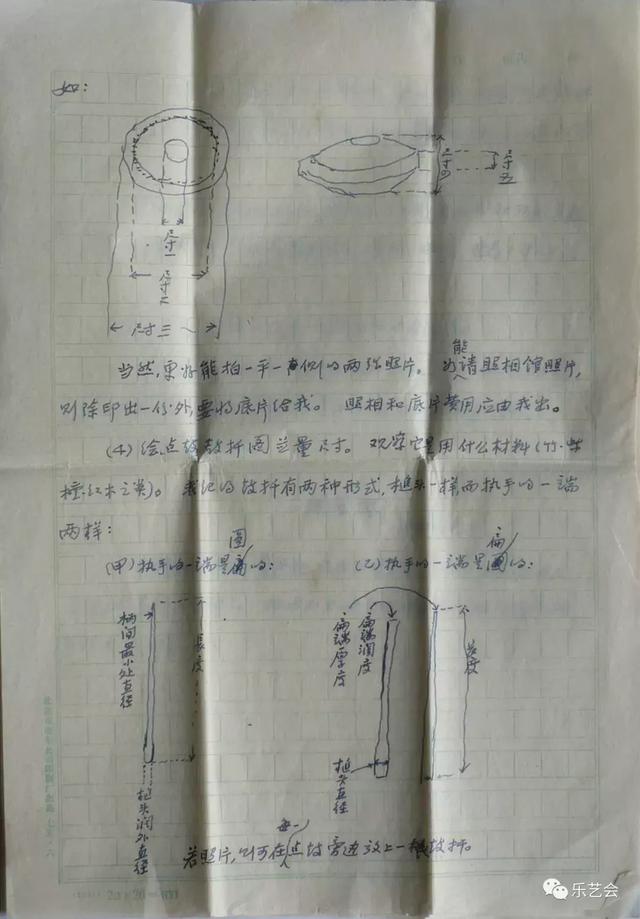 如:
尺寸一
尺寸二
尺寸三
尺寸四
尺寸五
当然,更好能拍一平一侧的两张照片。能请照相馆照片,
则除印出一份外,要将底片给我。照相和底片费用应由我出。
(4)绘点鼓鼓扦图并量尺寸。观察它是用什么材料(竹、紫
檀、红木之类)。我记得鼓扦有两种形式,槌头一样而执手的一端
两样:
(甲)执手的一端是圆的:
(乙)执手的一端是扁的:
柄间最小处直径
长度
槌头润外直径
扁端厚度
扁端润度
长度
槌头直径
若照片,则可在每一点鼓旁边放上一根鼓扦。
20×20=400
乐艺会